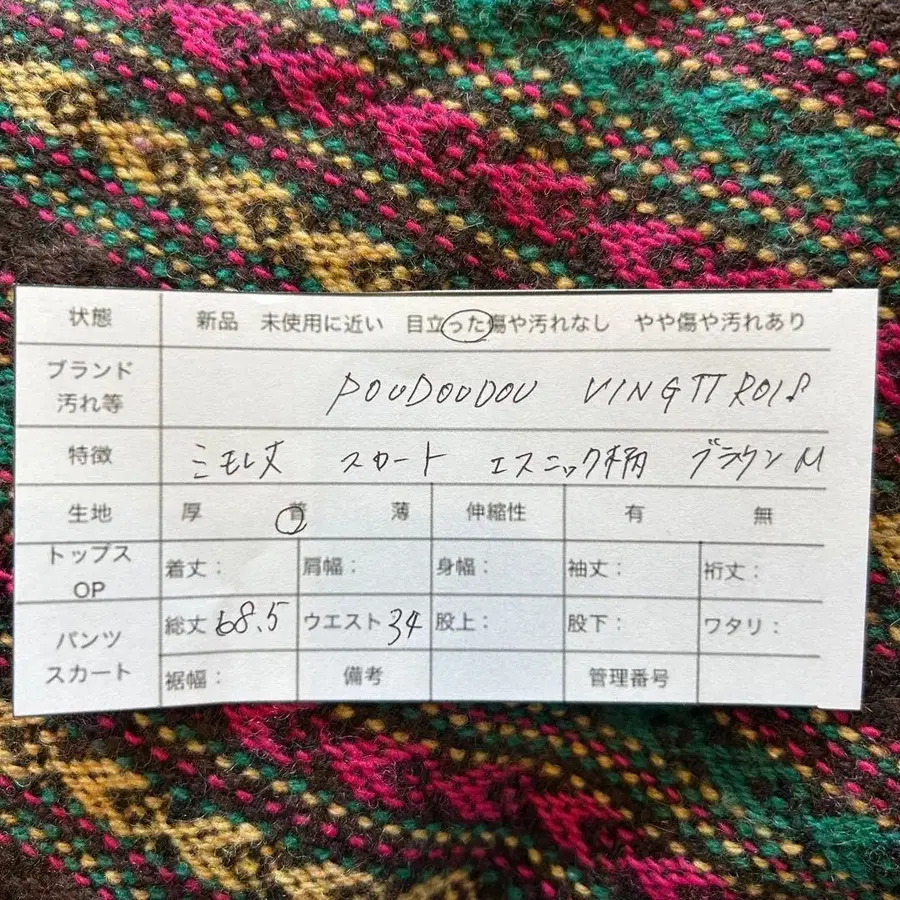 状態 新品 未使用に近い 目立った傷や汚れなし やや傷や汚れあり
ブランド
汚れ等
POUDOUDOU VINGTTROIS
特徴 ミモレ丈 スカート エスニック柄 ブラウン M
生地 厚 普 薄 伸縮性 有 無
トップス
OP
着丈: 肩幅: 身幅: 袖丈: 裄丈:
パンツ
スカート
総丈 68.5 ウエスト 34 股上: 股下: ワタリ:
裾幅: 備考 管理番号